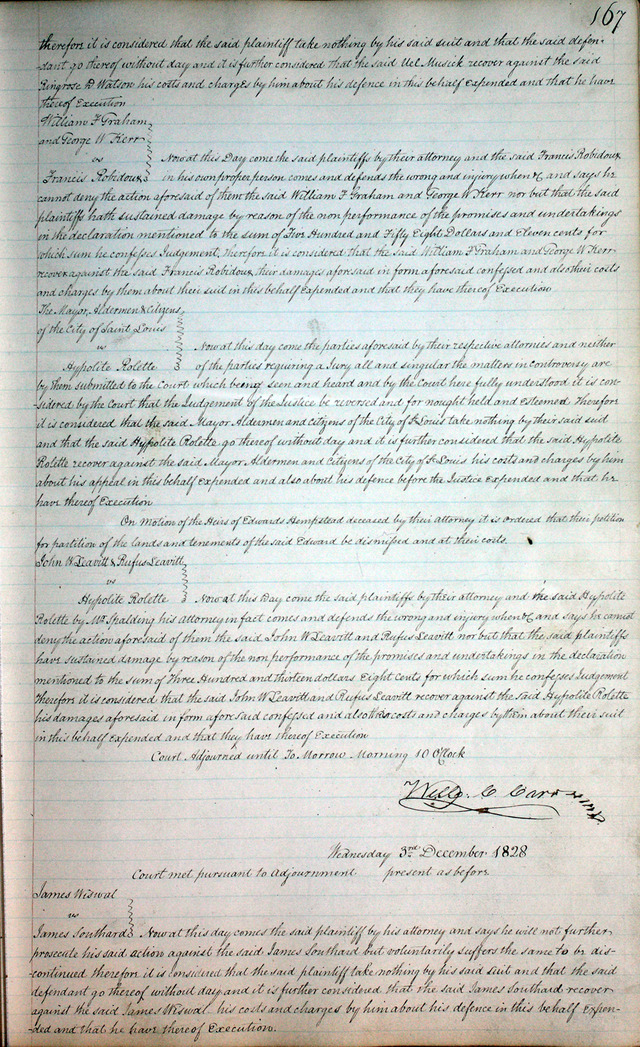 167
therefore it is considered that the said plaintiff take nothing by his said suit and that the said defen-
dant go thereof without day and it is further considered that the said Uel Musick recover against the said
Ringrose D Watson his costs and charges by him about his defence in this behalf Expended and that he have
thereof Execution
William F Graham
and George W Kerr
vs Now at this Day come the said plaintiffs by their attorney and the said Francis Robidoux
Francis Robidoux in his own proper person comes and defends the wrong and injury when &c and says he
cannot deny the action aforesaid of them the said William F Graham and George W Kerr nor but that the said
plaintiffs hath sustained damage by reason of the non performance of the promises and undertakings
in the declaration mentioned to the sum of Five Hundred and Fifty Eight Dollars and Eleven cents for
which sum he confesses Judgement, therefore it is considered that the said William F Graham and George W Kerr
recover against the said Francis Robidoux, their damages aforesaid in form aforesaid confessed and also their costs
and charges by them about their suit in this behalf Expended and that they have thereof Execution
The Mayor, Aldermen & Citizens
of the City of Saint Louis
vs Now at this day come the parties aforesaid by their respective attornies and neither
Hypolite Rolette of the parties requiring a Jury all and singular the matters in controversy are
by them submitted to the Court which being seen and heard and by the Court here fully understood it is con-
sidered by the Court that the Judgement of the Justice be reversed and for nought held and Esteemed Therefore
it is considered that the said Mayor Aldermen and citizens of the City of St Louis take nothing by their said suit
and that the said Hypolite Rolette go thereof without day and it is further considered that the said Hypolite
Rolette recover against the said Mayor Aldermen and Citizens of the City of St Louis his costs and charges by him
about his appeal in this behalf expended and also about his defence before the Justice Expended and that he
have thereof Execution
On Motion of the Heirs of Edwards Hempstead deceased by their attorney it is ordered that their petition
for partition of the lands and tenements of the said Edward be dismissed and at their costs.
John W Leavitt & Rufus Leavitt
vs
Hypolite Rolette Now at this Day come the said plaintiffs by their attorney and the said Hypolite
Rolette by Mr Spalding his attorney in fact comes and defends the wrong and injury when &c and says he cannot
deny the action aforesaid of them the said John W Leavitt and Rufus Leavitt nor but that the said plaintiffs
have sustained damage by reason of the non performance of the promises and undertakings in the declaration
mentioned to the sum of Three Hundred and thirteen dollars Eight Cents for which sum he confesses Judgement
Therefore it is considered that the said John W Leavitt and Rufus Leavitt recover against the said Hypolite Rolette
his damages aforesaid in form aforesaid confessed and also costs and charges by them about their suit
in this behalf Expended and that they have thereof Execution
Court Adjourned until To Morrow Morning 10 O'Clock
Will. C Carr
Wednesday 3rd December 1828
Court met pursuant to Adjournment present as before
James Wiswal
vs
James Southard Now at this day comes the said plaintiff by his attorney and says he will not further
prosecute his said action against the said James Southard but voluntarily suffers the same to be dis-
continued therefore it is considered that the said plaintiff take nothing by his said suit and that the said
defendant go thereof without day and it is further considered that the said James Southard recover
against the said James Wiswal his costs and charges by him about his defence in this behalf Expen-
ded and that he have thereof Execution.